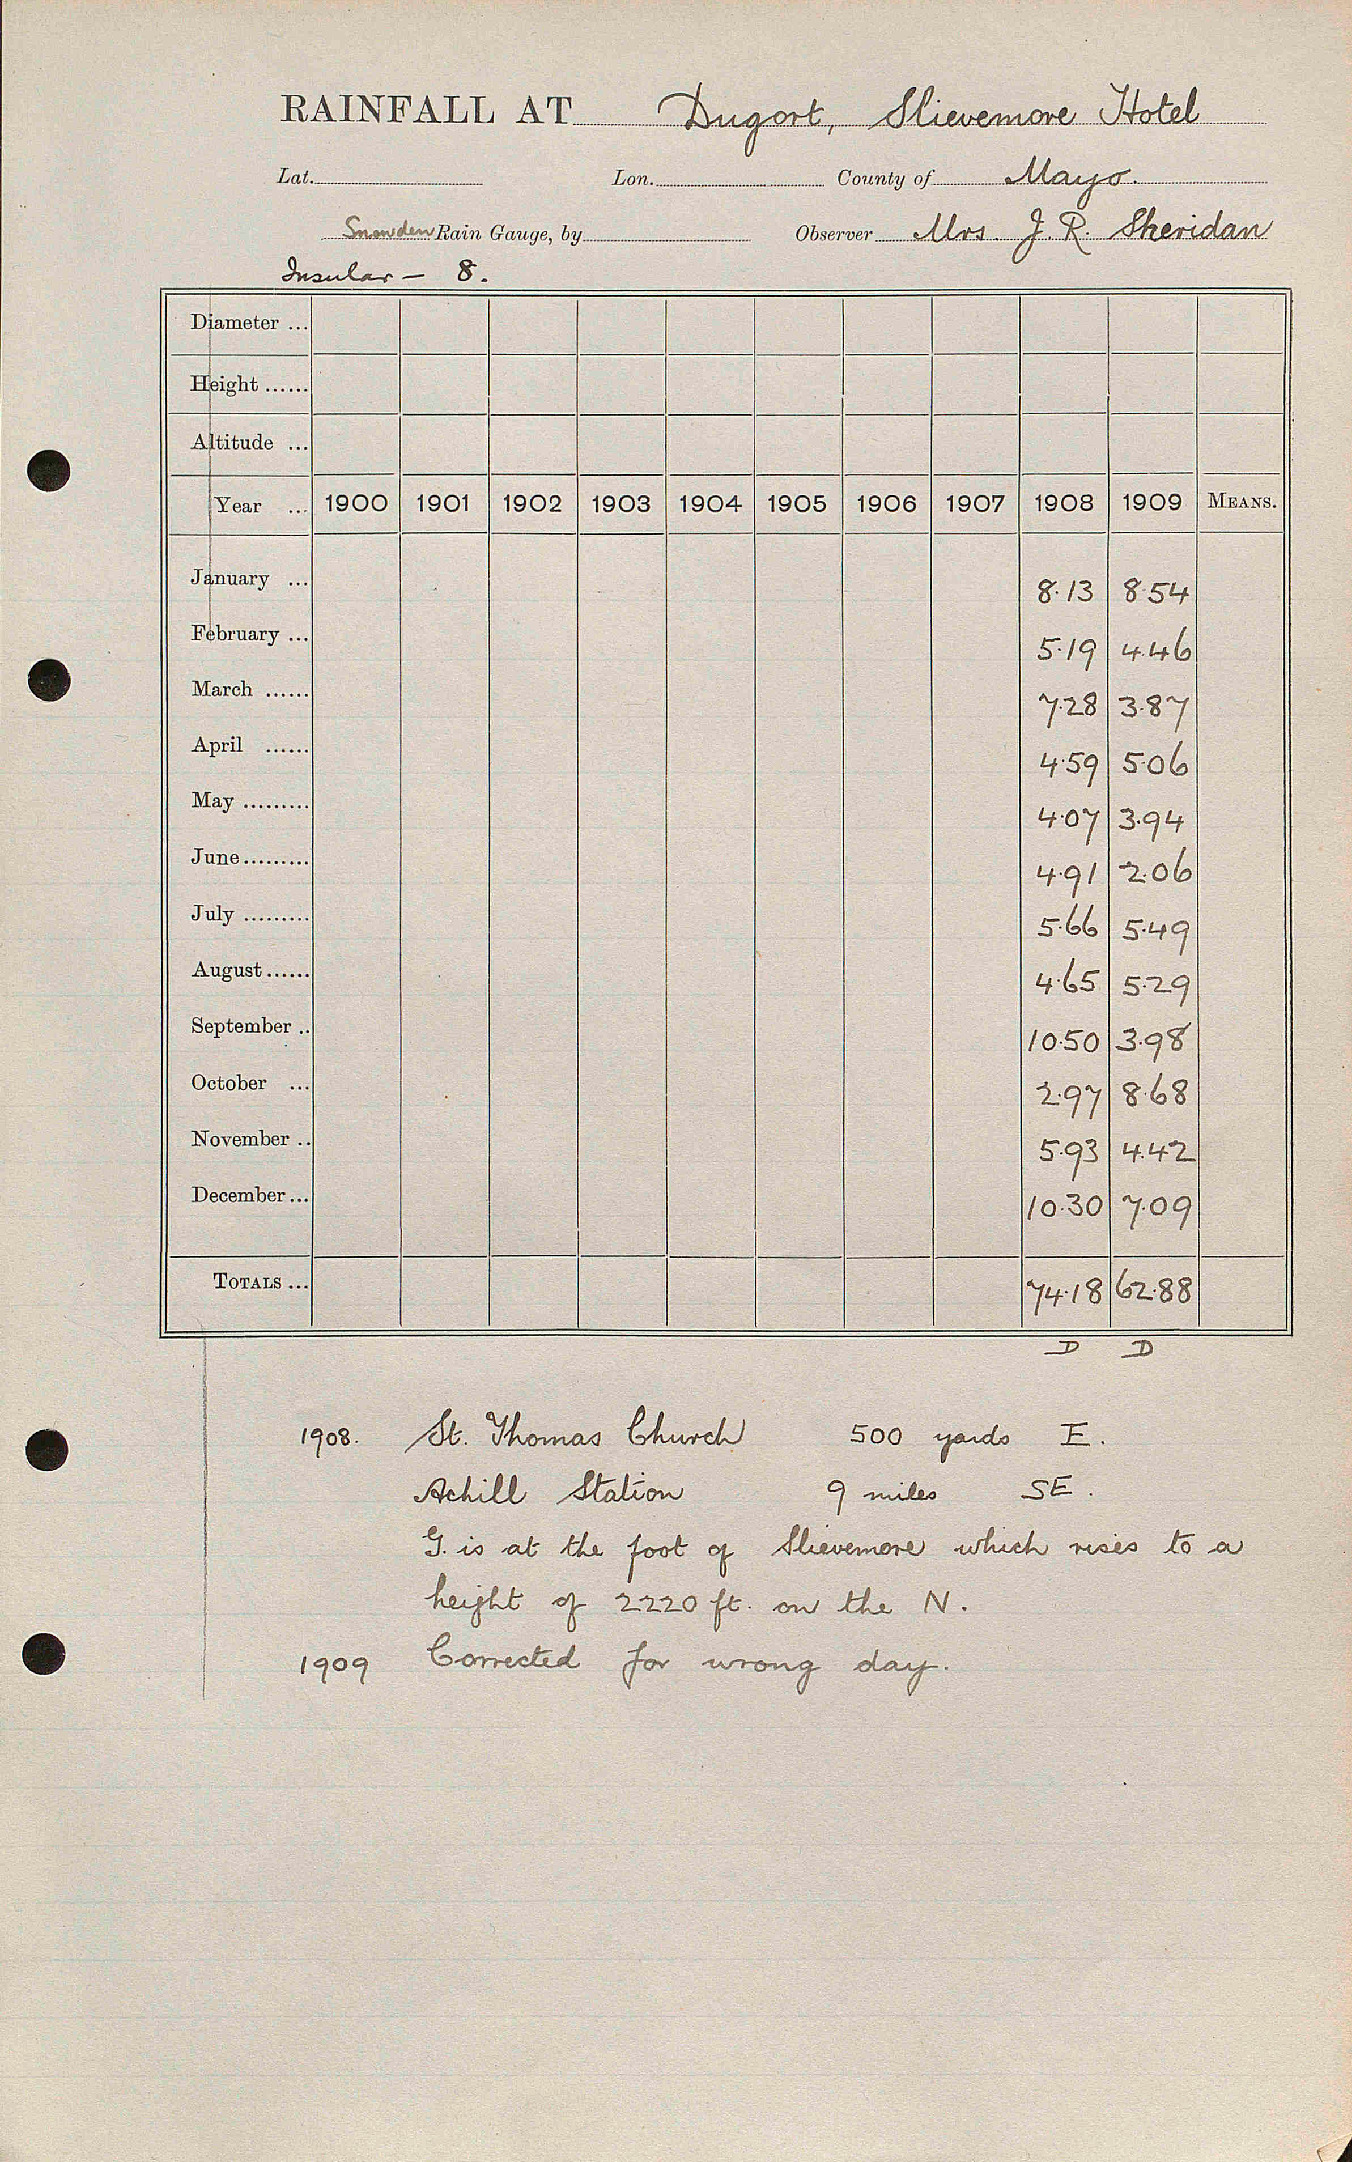 RAINFALL AT Dugort, Slievemore Hotel
Lat. Lon. County of Mayo.
Snowden Rain Gauge, by Observer Mrs J. R. Sheridan
Insular — 8.
Diameter ...
Height ......
Altitude ...
Year ... 1900 1901 1902 1903 1904 1905 1906 1907 1908 1909 MEANS.
January ... 8.13 8.54
February ... 5.19 4.46
March ...... 7.28 3.87
April ...... 4.59 5.06
May ......... 4.07 3.94
June......... 4.91 2.06
July ......... 5.66 5.49
August...... 4.65 5.29
September .. 10.50 3.98
October ... 2.97 8.68
November .. 5.93 4.42
December... 10.30 7.09
TOTALS ... 74.18 62.88
D D
1908. St. Thomas Church 500 yards E.
Achill Station 9 miles SE.
G. is at the foot of Slievemore which rises to a
height of 2220 ft. on the N.
1909 Corrected for wrong day.